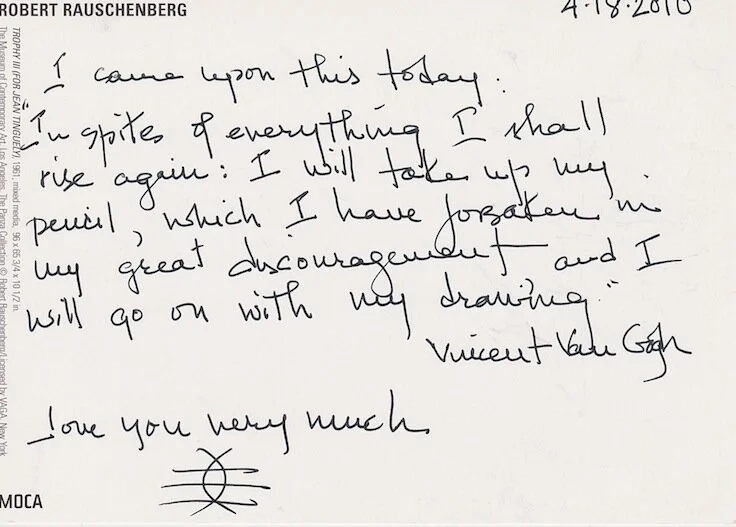 ROBERT RAUSCHENBERG
4·18·2010
I came upon this today:
"In spites of everything I shall
rise again: I will take up my
pencil, which I have forsaken in
my great discouragement and I
will go on with my drawing."
Vincent Van Gogh
Love you very much
TROPHY III (FOR JEAN TINGUELY), 1961, mixed media, 96 x 65 3/4 x 10 1/2 in.
The Museum of Contemporary Art, Los Angeles, The Panza Collection © Robert Rauschenberg/Licensed by VAGA, New York
MOCA